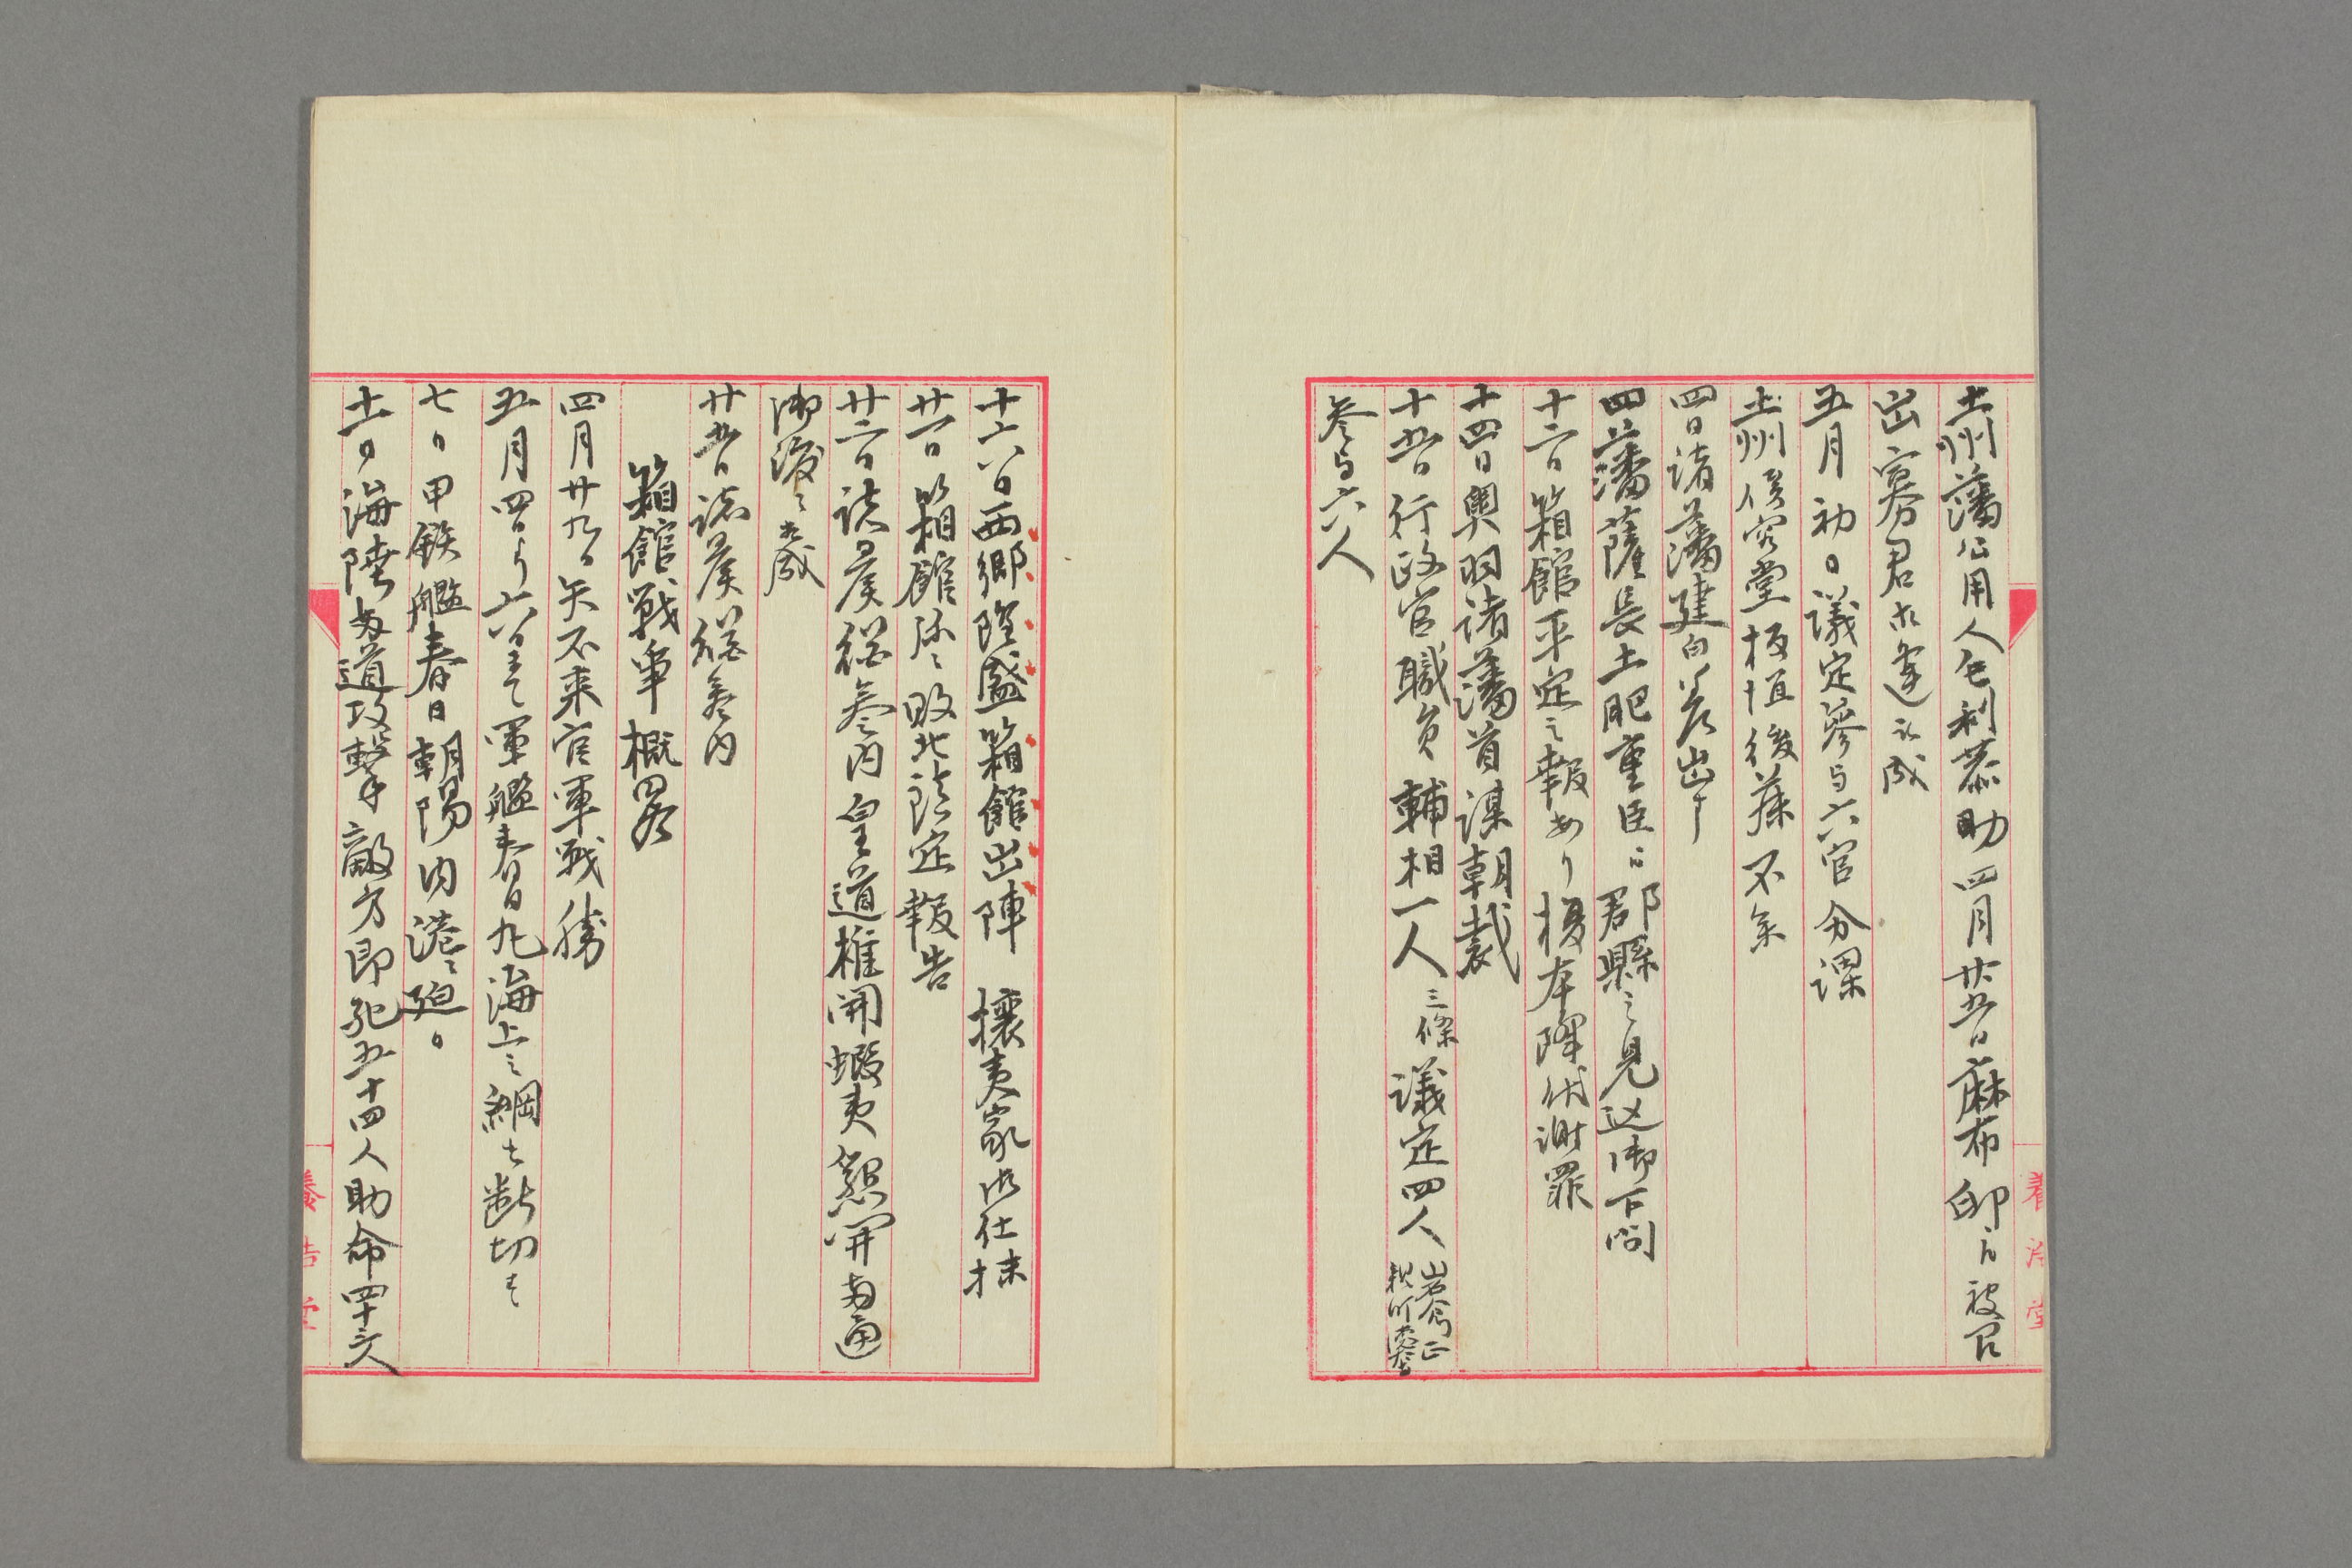 土州藩公用人毛利恭助四月廿五日麻布邸ニ被召
出寡君ホ逢被成
五月初日議定参与六官分課
土州侯容堂板垣後藤不参
四日諸藩建白差出ス
四藩薩長土肥重臣ニ郡縣之見込御下問
十二日箱館平定之報あり榎本降伏謝罪
十四日奥羽諸藩首謀朝裁
十五日行政官職負輔相一人三條議定四人岩倉
参与六人
十六日西郷隆盛箱館出陣 攘夷家
廿一日箱館弥敗北鎮定報告
廿二日諸侯惣参内皇道推開蝦夷開両通
御渡ニ成
廿五日諸侯惣参内
箱館戦争概畧
四月廿九日矢不来官軍戦勝
五月四日ゟ六日まて軍艦春日丸海上之綱を断切る
七日甲鉄艦春日朝陽内港ニ廻ル
十一日海陸両道攻撃敵方即死五十四人助命四十三人
養浩堂